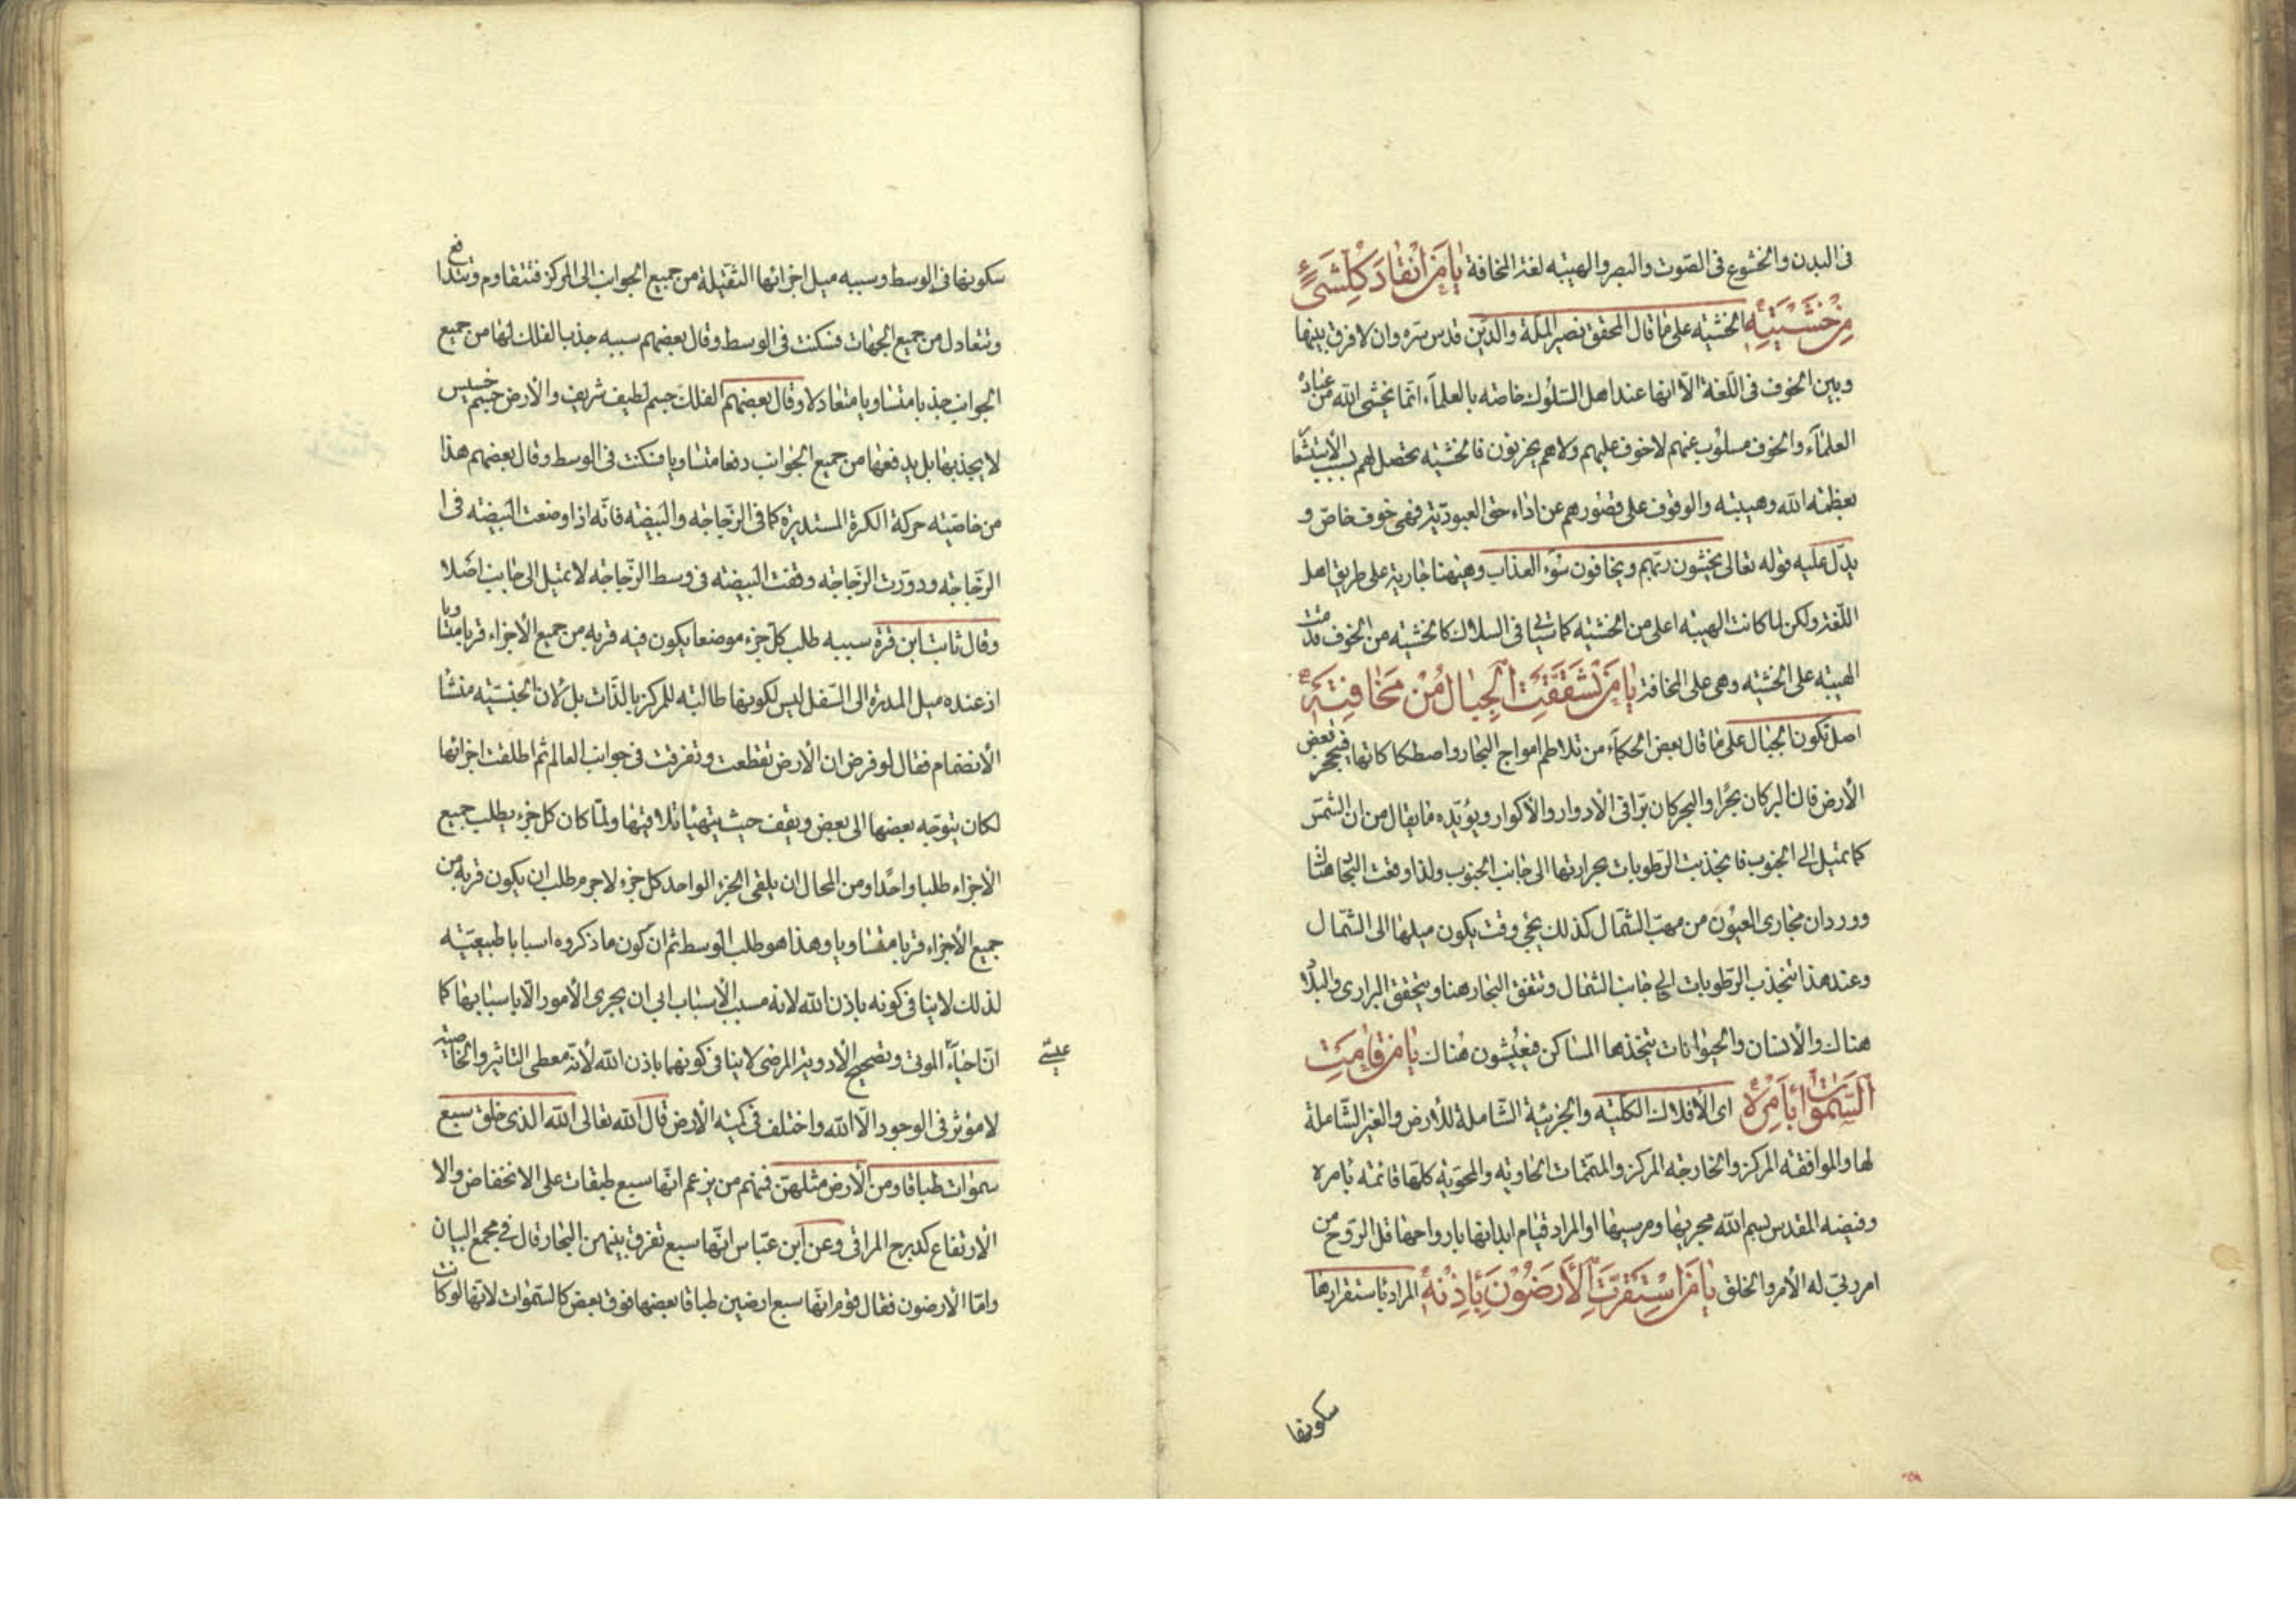 فى البدن والخشوع فى الصّوت والبصر والهيبة لغة المخافة يا مَن انْقادَ كُلُّ شَىْءٍ
مِنْ خَشْيَتِهِ الخشية على ما قال المحقق نصير الملّة والدّين قدس سرّه وان لا فرق بينها
وبين الخوف فى اللّغة الّا انها عند اهل السّلوك خاصة بالعلماء انّما يخشى اللّه من عباده
العلمآء والخوف مسلوب عنهم لا خوف عليهم ولا هم يحزنون فالخشية تحصل لهم بسبب الاستشعا
بعظمة اللّه وهيبته والوقوف على قصورهم عن اداء حق العبوديّة فهى خوف خاصّ و
يدّل عليه قوله تعالى يخشون ربّهم ويخافون سوء العذاب وهيهنا جارية على طريق اهل
اللّغة ولكن لما كانت الهيبة اعلى من الخشية كما سيأتى فى السلاك كالخشية من الخوف قدمت
الهيبة على الخشية وهى على المخافة يا مَنْ تَشَقَّقَتِ الْجِبالُ مِنْ مَخافَتِهِ
اصل تكون الجبال على ما قال بعض الحكمآء من تلاطم امواج البحار واصطكاكاتها فيتحجر بعض
الأرض فان البر كان بحرا والبحر كان برّا فى الادوار والأكوار ويؤيّده ما يقال من ان الشمس
كما تميل الى الجنوب فانجذبت الرّطوبات بحرارتها الى جانب الجنوب ولذا وقعت البحار هناك
ووردان مجارى العيون من مهبّ الشّمال كذلك يجئ وقت يكون ميلها الى الشّمال
وعند هذا تنجذب الرّطوبات الى جانب الشّمال وتتفق البحار هنا ويتحقق البرارى والبلاد
هناك والأنسان والحيوانات يتخذها المساكن فيعيشون هناك يا مَنْ قامَتِ
السَّمواتُ بِأَمْرِهِ اى الأفلاك الكلّية والجزئية الشّاملة للأرض والغير الشّاملة
لها والموافقة المركز والخارجة المركز والمتمّمات الحاوية والمحويّة كلّها قائمة بامره
وفيضه المقدس بسم اللّه مجريها ومرسيها او المراد قيام ابدانها بارواحها قل الرّوح من
امر ربّى له الأمر والخلق يا مَنِ اسْتَقَرَّتِ الْأَرَضُونَ بِإِذْنِهِ المراد باستقرارها
سكونها
سكونها فى الوسط وسببه ميل اجزائها الثقيلة من جميع الجوانب الى المركز فتتقاوم وتتدافع
وتتعادل من جميع الجهات فسكنت فى الوسط وقال بعضهم سببه جذب الفلك لها من جميع
الجوانب جذبا متساويا متعادلا وقال بعضهم الفلك جسم لطيف شريف والأرض جسم خسيس
لا يجذبها بل يدفعها من جميع الجوانب دفعا متساويا فسكنت فى الوسط وقال بعضهم هذا
من خاصيّة حركة الكرة المستديرة كما فى الزّجاجة والبيضة فانّه اذا وضعت البيضة فى ا
الزّجاجة ودوّرت الزّجاجة وقفت البيضة فى وسط الزّجاجة لا تميل الى جانب اصلا
وقال ثابت ابن قرة سببه طلب كل جزء موضعا يكون فيه قربه من جميع الأجزاء قربا متساويا
اذ عنده ميل المدرة الى السّفل ليس لكونها طالبة للمركز بالذّات بل لأن الجنسيّة منشا
الأنضمام فقال لو فرض ان الأرض تقطعت وتفرقت فى جوانب العالم ثم اطلقت اجزائها
لكان يتوجّه بعضها الى بعض ويقف حيث يتهيّأ تلاقيها ولمّا كان كل جزء يطلب جميع
الأجزاء طلبا واحدا ومن المحال ان يلقى الجزء الواحد كل جزء لا جرم طلب ان يكون قربه من
جميع الأجزاء قربا متساويا وهذا هو طلب الوسط ثم ان كون ما ذكروه اسبابا طبيعيّة
لذلك لا ينافى كونه باذن اللّه لانه مسبب الأسباب ابى ان يجرى الأمور الّا باسبابها كما
انّ احيآء الموتى وتصحيح الأدوية المرضى لا ينافى كونهما باذن اللّه لأنّه معطى التاثير والخاصيّة
عيسى
لا مؤثر فى الوجود الّا اللّه واختلف فى كميّة الأرض قال اللّه تعالى اللّه الذى خلق سبع
سموات طباقا ومن الأرض مثلهنّ فمنهم من يزعم انّها سبع طبقات على الانخفاض والا
الأرتفاع كدرج المراقى وعن ابن عبّاس انّها سبع تفرق بينهن البحار قال فى مجمع البيان
وامّا الأرضون فقال قوم انّها سبع ارضين طباقا بعضها فوق بعض كالسّموات لانّها لو كانت